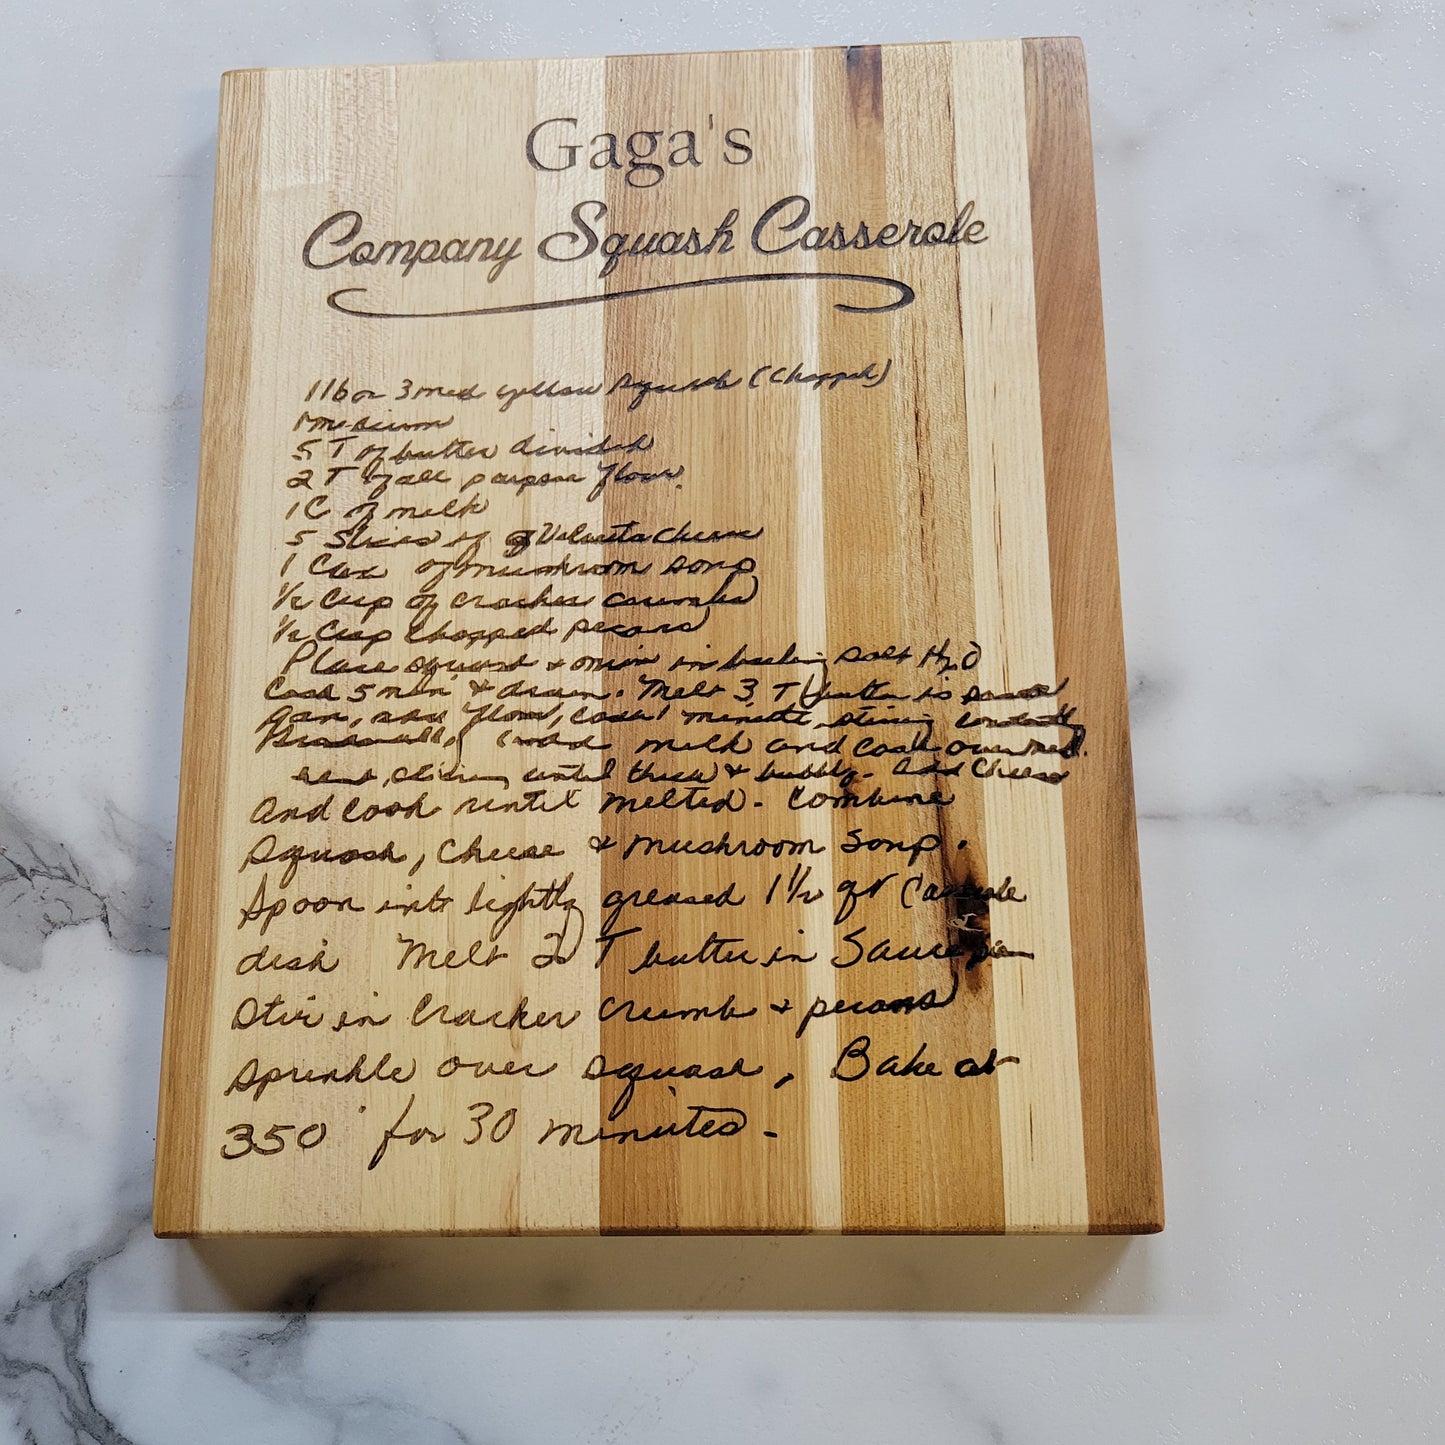 Gaga's
Company Squash Casserole
1 lb or 3 med yellow squash (chopped)
1
5 T of butter divided
2 T of all purpose flour
1 C of milk
5 Slices of Velveeta cheese
1 Can of mushroom soup
1/2 Cup of cracker crumbs
1/2 Cup chopped pecans
Place squash & onion in boiling salt H2O
Cook 5 min & drain. Melt 3 T butter in sauce
pan, add flour, cook 1 minute stirring constantly
add milk and cook over med.
heat, stirring until thick & bubbly. add cheese
and cook until melted. Combine
squash, cheese & mushroom soup.
Spoon into lightly greased 1 1/2 qt Casserole
dish Melt 2 T butter in Sauce pan
Stir in Cracker Crumb & pecans
sprinkle over squash, Bake at
350° for 30 minutes.